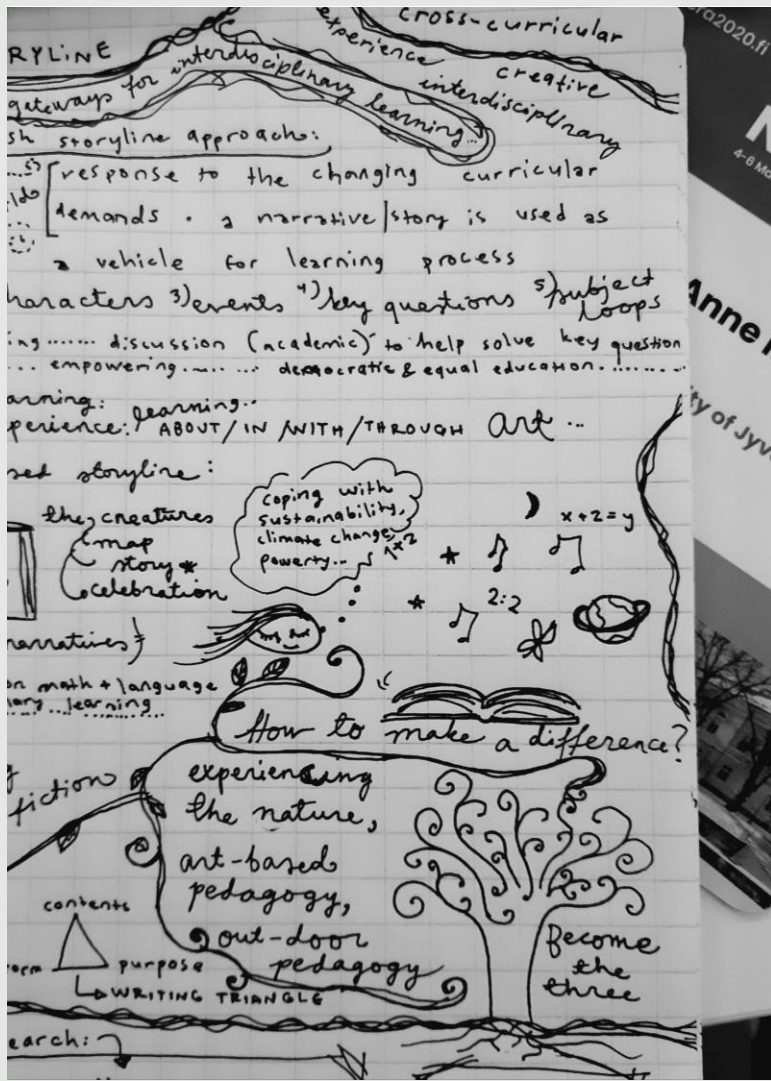 RYLINE
gateways for interdisciplinary learning...
cross-curricular
experience
creative
interdisciplinary
sh storyline approach:
response to the changing curricular
demands. a narrative/story is used as
a vehicle for learning process
haracters 3) events 4) key questions 5) subject
loops
ing...... discussion (academic) to help solve key question
... empowering........ democratic & equal education........
arning: learning..
perience: ABOUT/IN/WITH/THROUGH art...
sed storyline:
the creatures
map
story *
celebration
coping with
sustainability,
climate change,
powerty...
1x2
x+2=y
2:2
narratives
on math + language
nary...learning
How to make a difference?
fiction
experiencing
the nature,
art-based
pedagogy,
out-door
pedagogy
contents
orm
purpose
WRITING TRIANGLE
Become
the
three
earch:
ra2020.fi
4-6 Ma
Anne
ity of Jyv